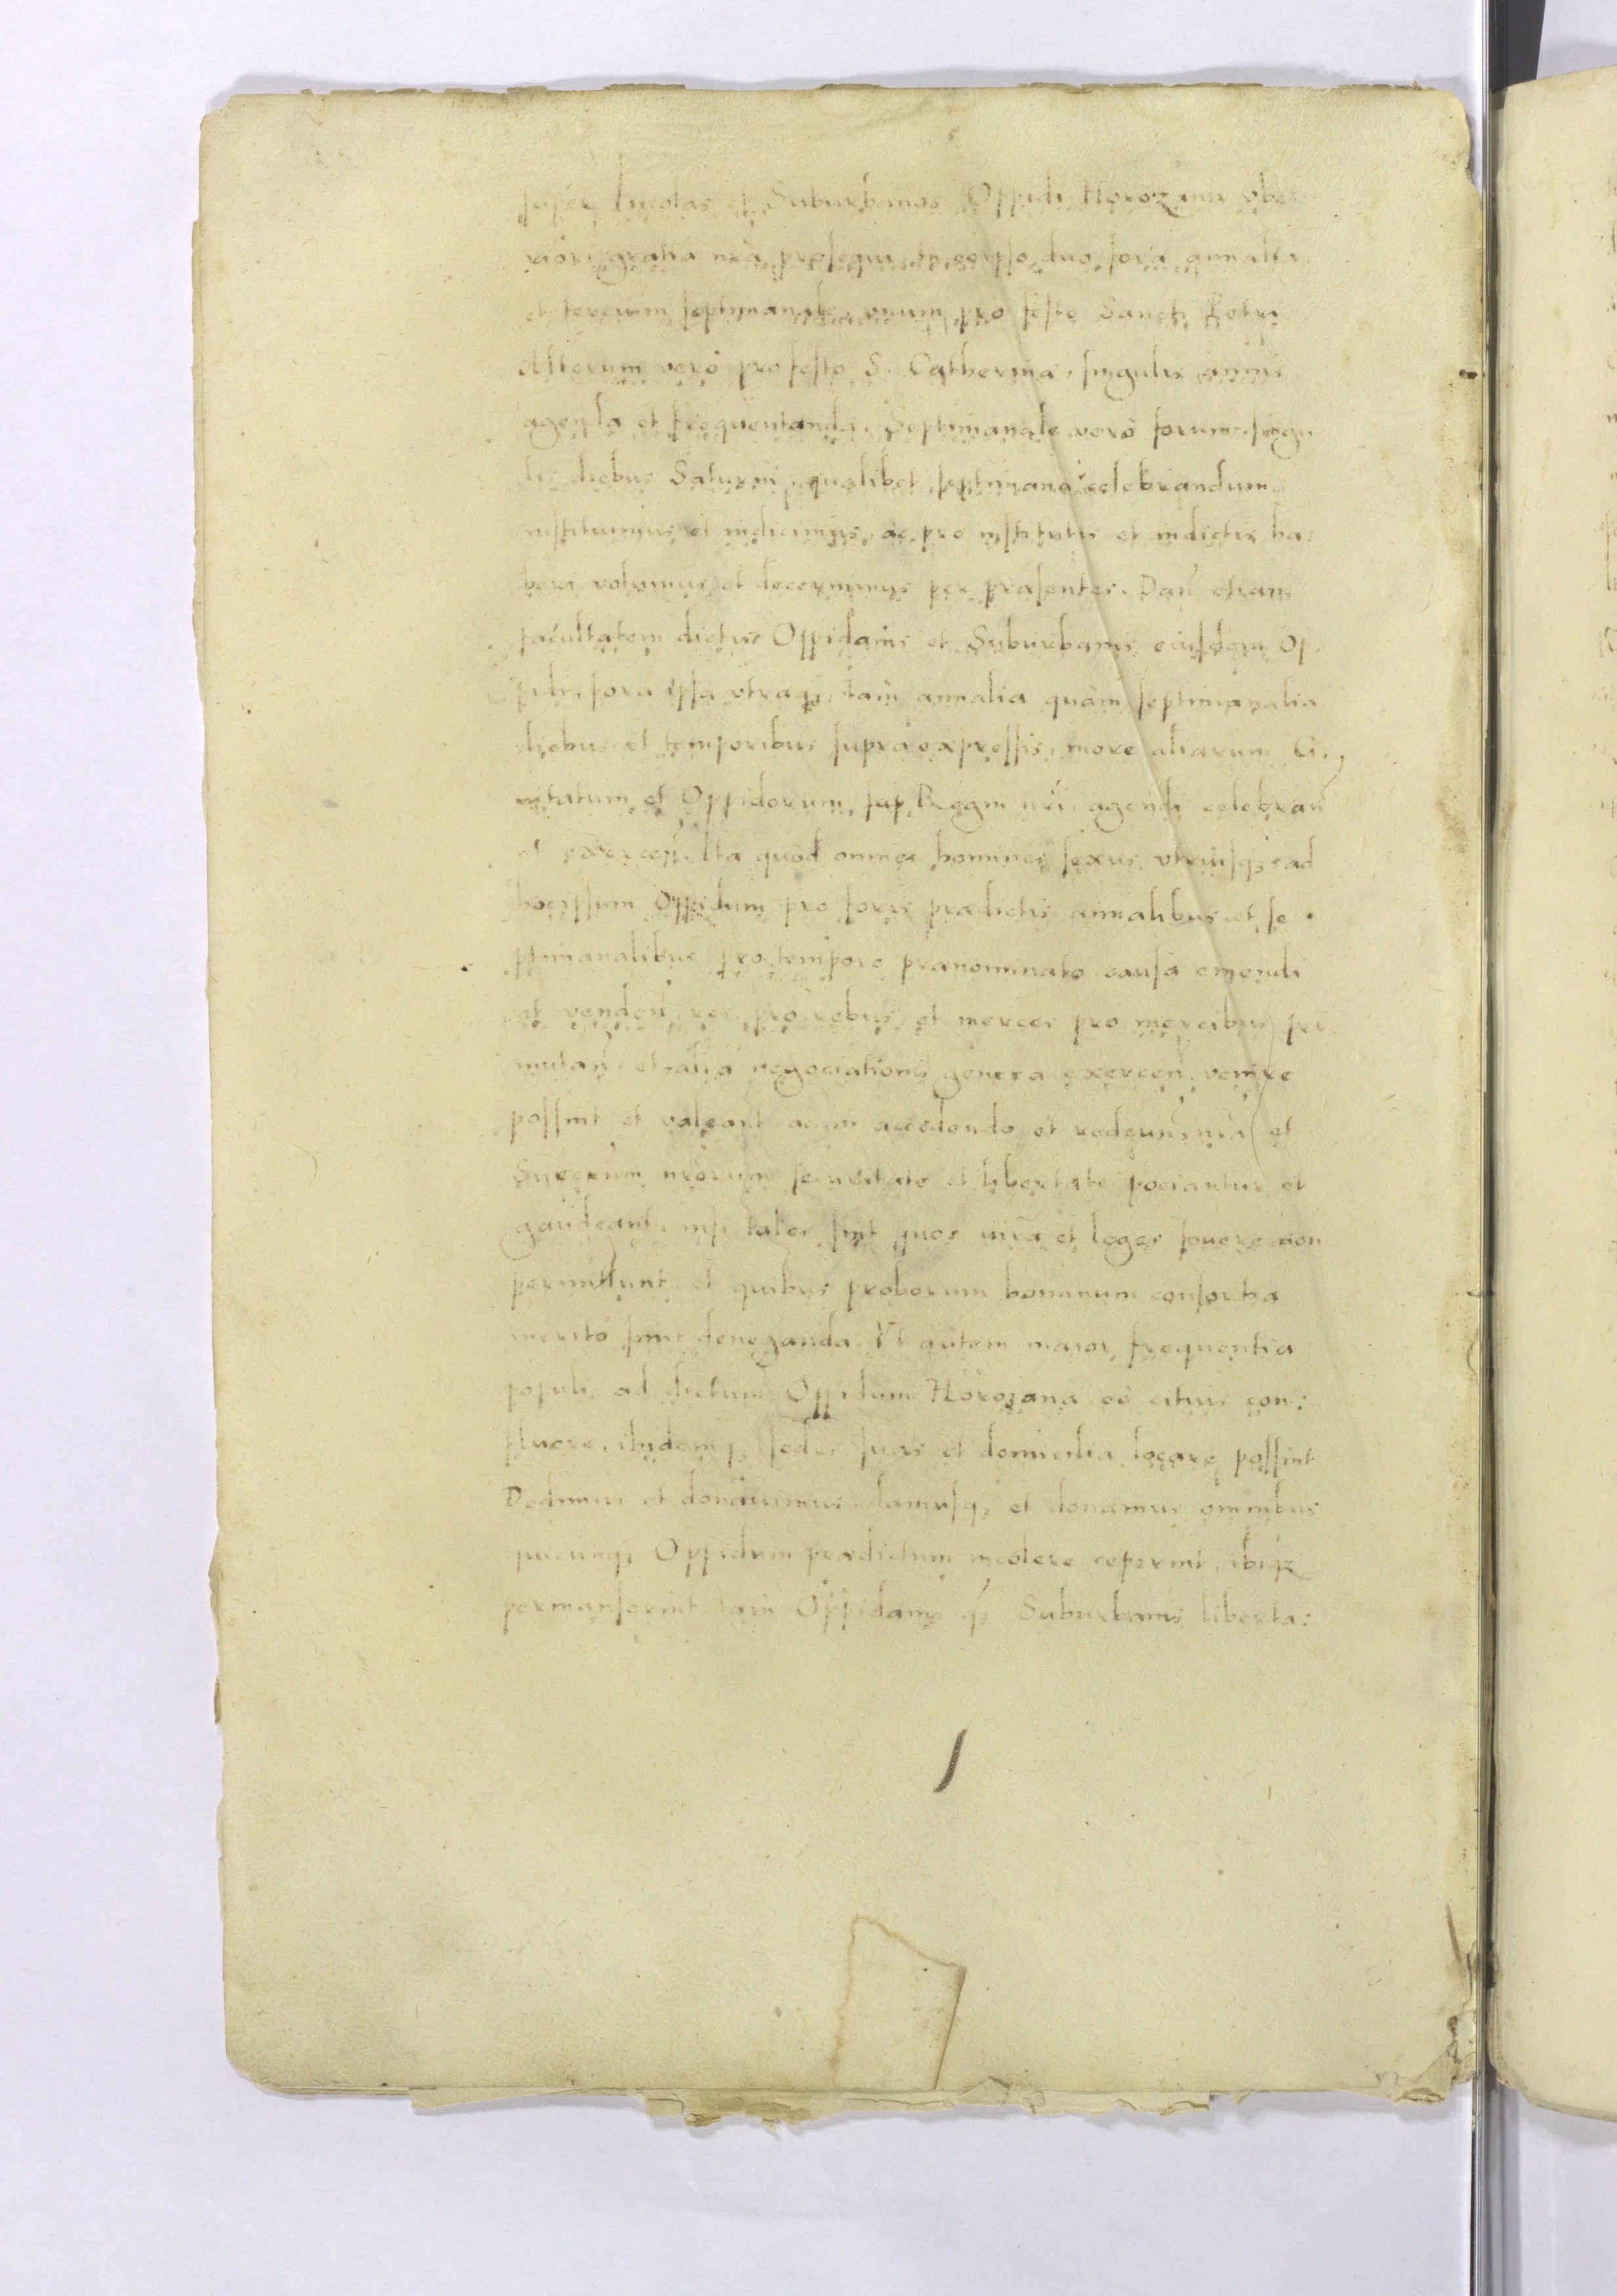 super Incolas et Suburbanos Oppidi Horozana vbe
riori gratia nrã prosequi in eo ipso duo fora annalia
et tercium septimanale, vnum pro festo Sancti Petri
Alterum verò pro festo S. Catherinæ, singulis annis
agenda et frequentanda. Septimanale verò forum singu
lis diebus Saturni qualibet septimana celebrandum
instituimus et indicimus, ac pro institutis et indictis ha:
beri volumus et decernimus per præsentes. Dañ etiam
facultatem dictis Oppidanis et Suburbanis eiusdem Op
pidi, fora ipsa vtraqȝ tam annalia quàm septimanalia
diebus et temporibus supra expressis, more aliarum Ci,,
uitatum et Oppidorum Regni nrĩ agendi celebrañ
et exerceñ. Ita quòd omnes homines sexus vtriusqȝ ad
hoc ipsum Oppidum pro foris prædictis annalibus et se
ptimanalibus pro tempore prænominato causa emendi
et vendeñ res pro rebus et merces pro mercibus per
mutañ et alia negociationis genera exerceñ venire
possint et valeant ac in accedendo et redeuñ nrã et
Succrum nrõrum securitate et libertate pociantur et
gaudeant, nisi tales sint quos iura et leges fouere non
permittunt et quibus proborum hominum consortia
merito sunt deneganda. Vt autem maior frequentia
populi ad dictum Oppidum Horozana eò citius con:
fluere, ibidemqȝ sedes suas et domicilia locare possint
Dedimus et donauimus damusqȝ et donamus omnibus
quicunqȝ Oppidum prædictum incolere ceperint, ibiqȝ
permanserint tam Oppidanis qȝ Suburbanis liberta: